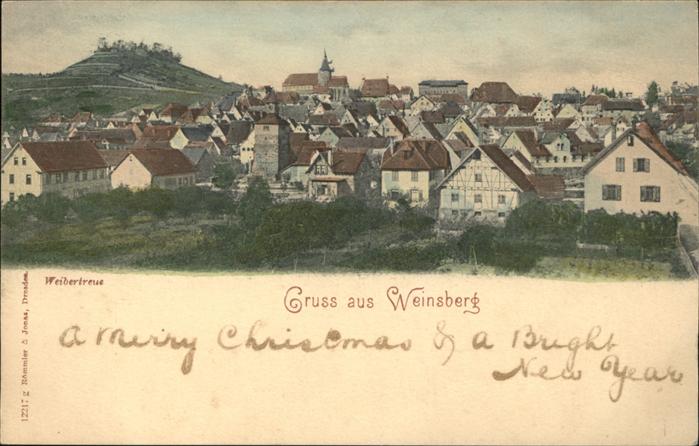 Weibertreue
Gruss aus Weinsberg
a Merry Christmas & a Bright
New Year
12217 g Römmler & Jonas, Dresden.